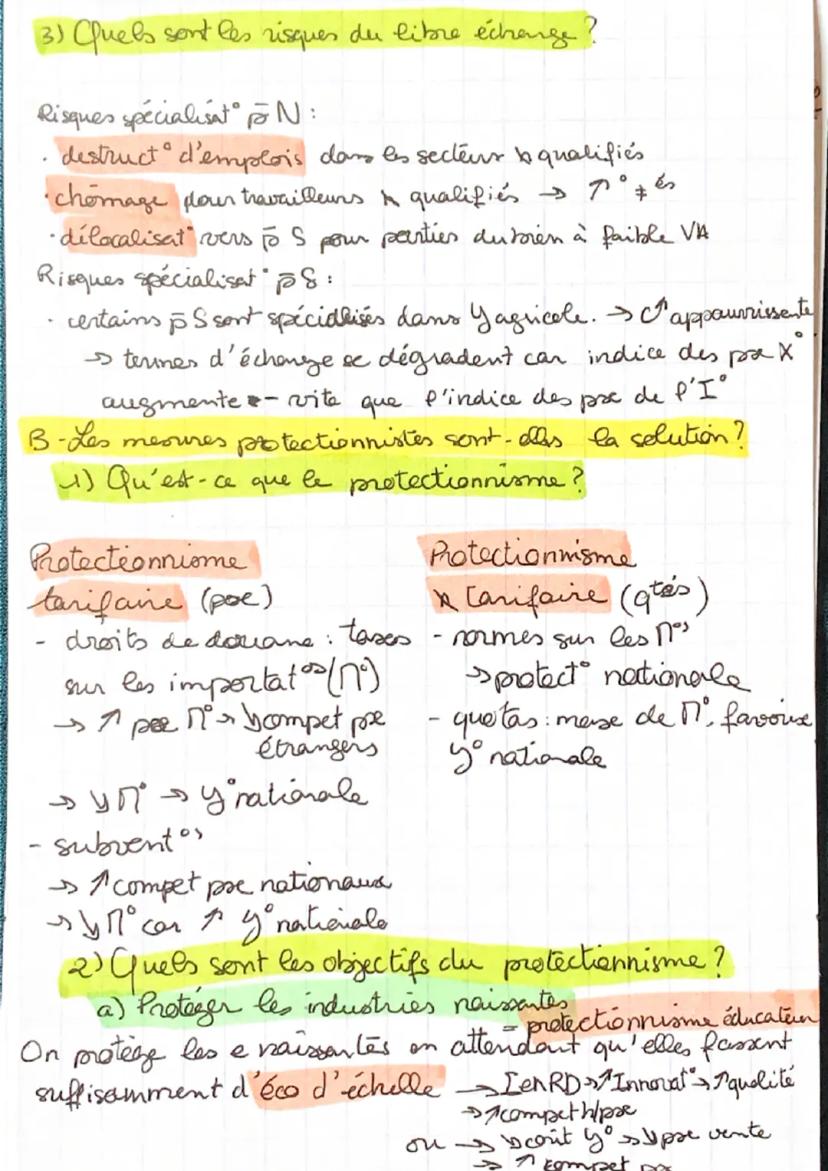 3) Quels sont les risques du libre échange ?
Risques spécialisat° p̄ N :
. destruct° d'emplois dans les secteurs ↘ qualifiés
. chômage pour travailleurs qualifiés → ↑° ≠ és
. délocalisat° vers p̄ S pour parties du bien à faible VA
Risques spécialisat° p̄ S :
. certains p̄ S sont spécialisés dans Y agricole. → C↑ appauvrissante
→ termes d'échange se dégradent car indice des px X°
augmente - vite que l'indice des px de l'I°
B - Les mesures protectionnistes sont-elles la solution ?
1) Qu'est-ce que le protectionnisme ?
Protectionnisme
tarifaire (px)
- droits de douane : taxes
sur les importat°s (M°)
→ ↑ px M° → ↘ compet px
étrangers
→ ↘ M° → y° nationale
- subvent°s
→ ↑ compet px nationaux
→ ↘ M° car ↑ y° nationale
Protectionnisme
tarifaire (qtés)
- normes sur les M°s
→ protect° nationale
- quotas : max de M°, favorise
y° nationale
2) Quels sont les objectifs du protectionnisme ?
a) Protéger les industries naissantes
= protectionnisme éducateur
On protège les e naissantes en attendant qu'elles fassent
suffisamment d'éco d'échelle → I en RD → ↑ Innovat° → ↑ qualité
→ ↑ compet h/px
ou → ↘ coût y° → ↘ px vente
→ ↑ compet px